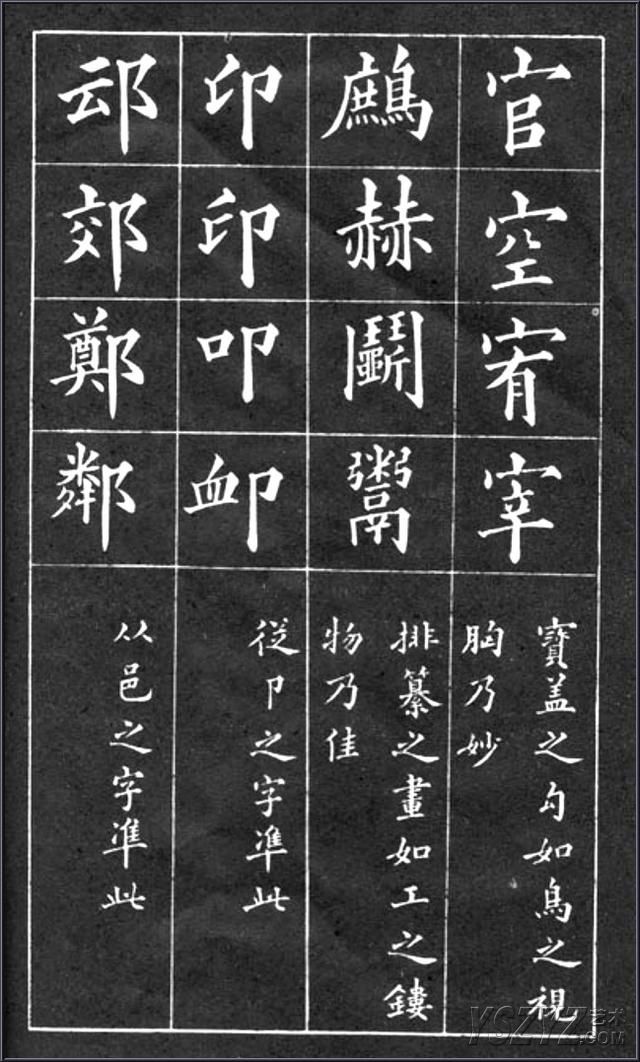 官
空
宥
宰
寶盖之勾如鳥之視
胸乃妙
鷓
赫
鬬
鬻
排纂之畫如工之鏤
物乃佳
印
印
叩
卹
從卩之字準此
䢵
郊
鄭
鄰
从邑之字準此
YGZYZ艺术
.COM